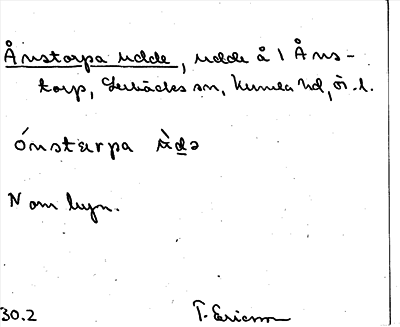 Ånstorpa udde, udde å 1 Åns-
torp, Lerbäcks sn, Kumla hd, Ör. l.
ónstarpa ù̀də
N om byn.
30.2 T. Ericsson